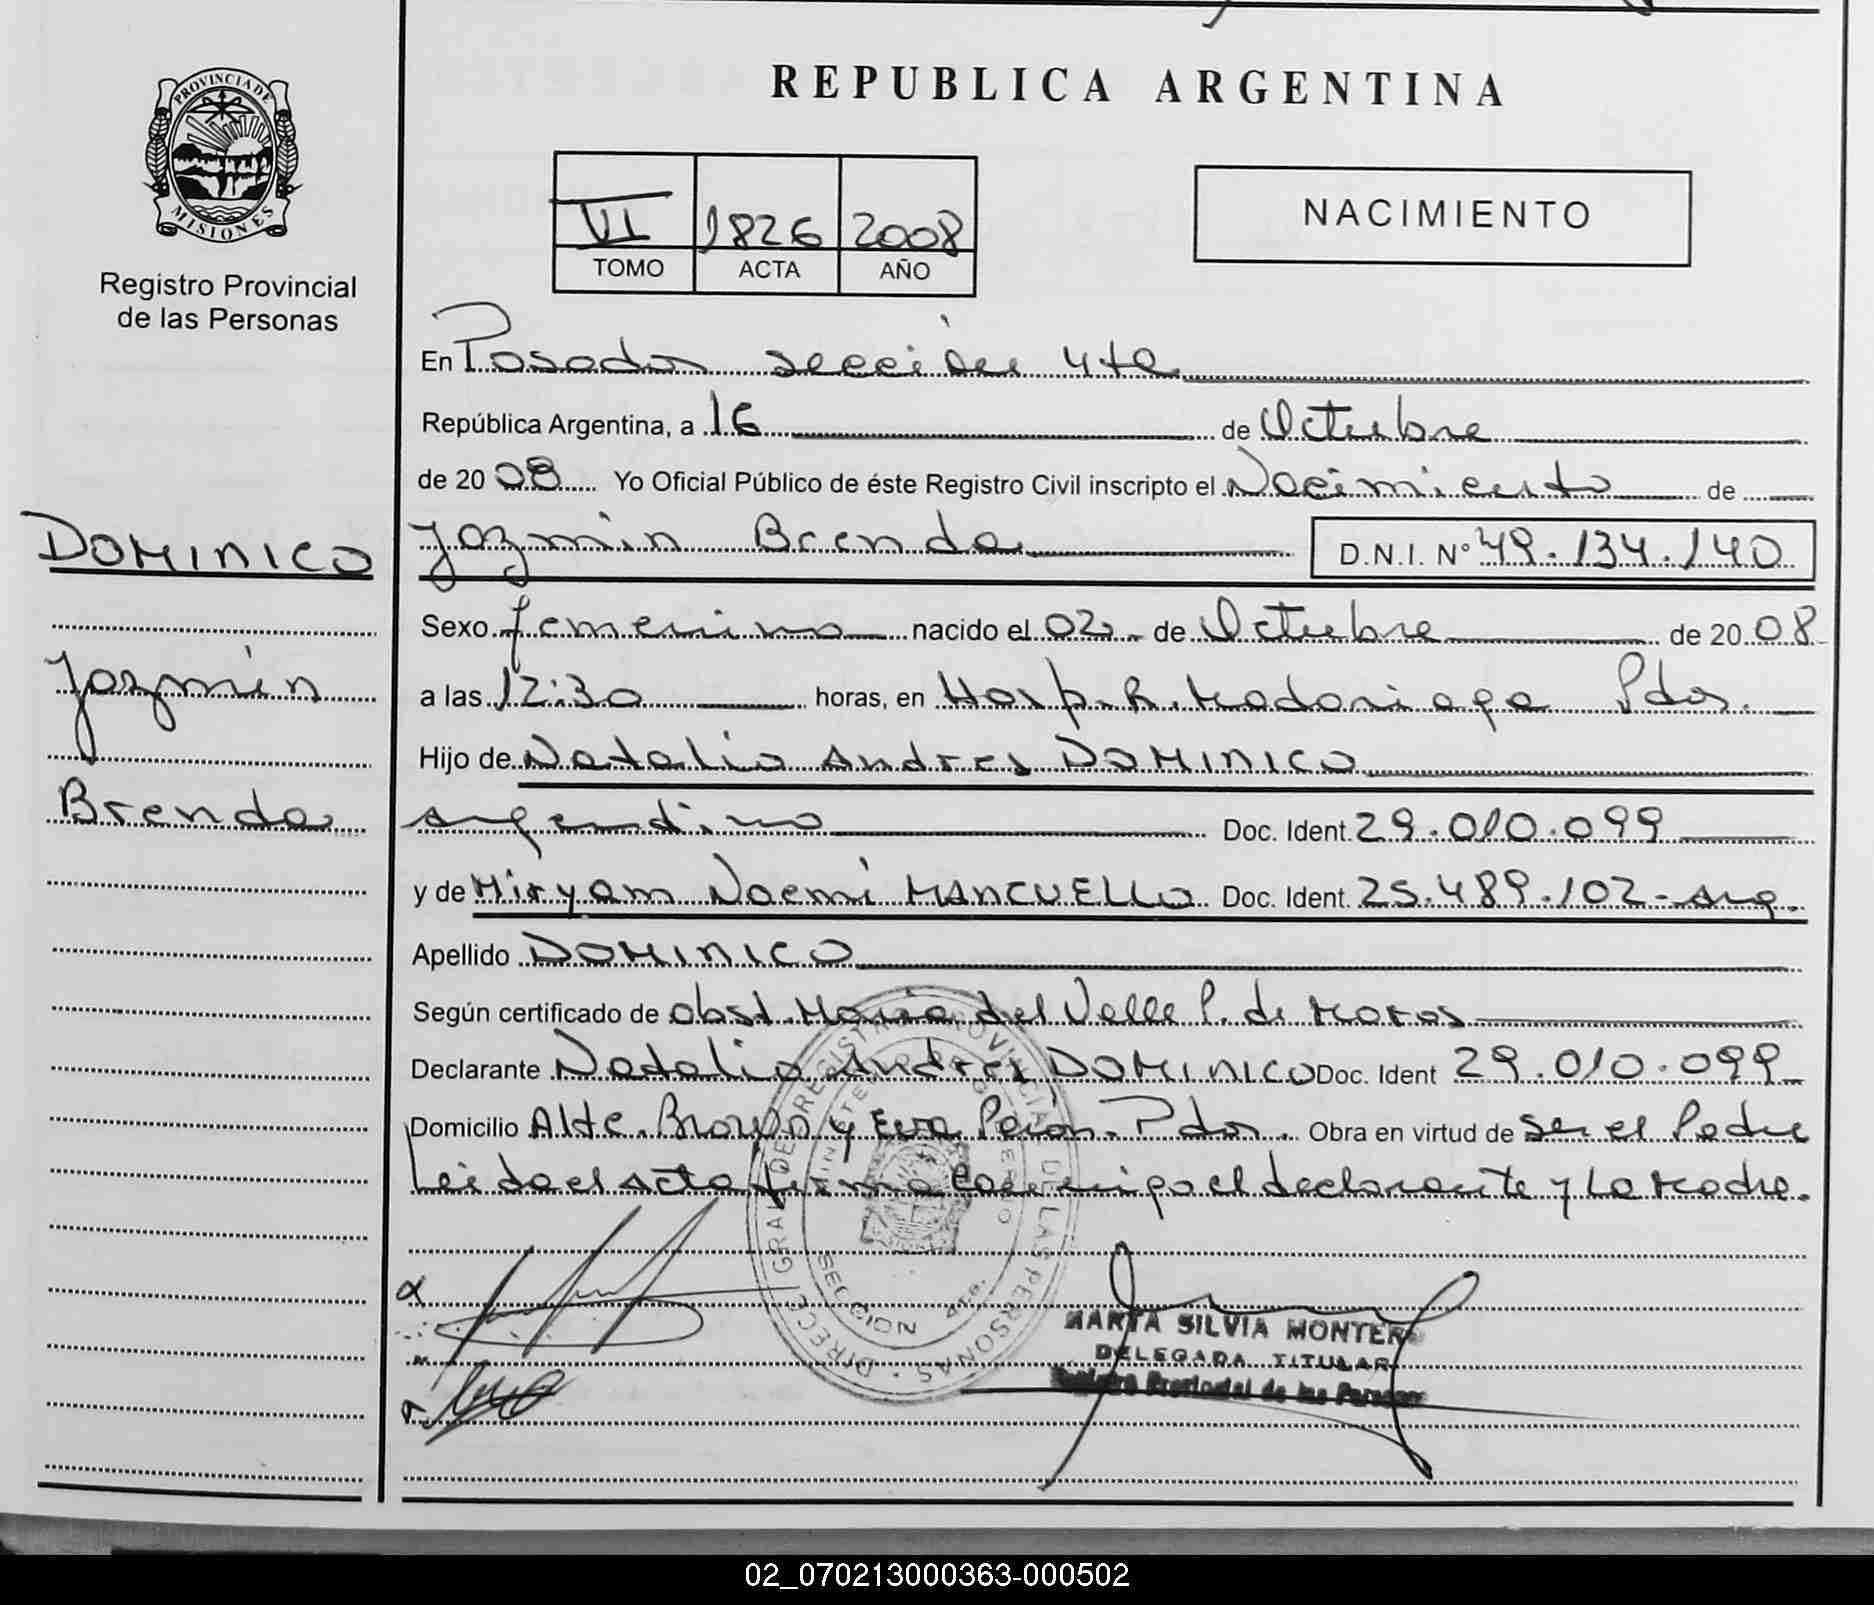 REPUBLICA ARGENTINA
PROVINCIA DE
MISIONES
Registro Provincial
de las Personas
VI 1826 2008
TOMO ACTA AÑO
NACIMIENTO
En Posadas sección 4ta
República Argentina, a 16 de Octubre
de 2008 Yo Oficial Público de éste Registro Civil inscripto el Nacimiento de
DOMINICO
Jazmin Brenda D.N.I. N° 49.134.140
Sexo femenino nacido el 02 de Octubre de 2008
Jazmin
a las 12:30 horas, en Hosp. R. Madariaga Pdas.
Hijo de Natalio Andres DOMINICO
Brenda
argentino Doc. Ident. 29.010.099
y de Miryam Noemi MANCUELLO Doc. Ident. 25.489.102 - Arg.
Apellido DOMINICO
Según certificado de obst. Maria del Valle P. de
Declarante Natalio Andres DOMINICO Doc. Ident 29.010.099
Domicilio Alte. Brown y Eva Perón. Pdas. Obra en virtud de ser el Padre
Leida el Acta firma conmigo el declarante y La Madre.
DIRECC. GRAL. DEL REGISTRO PROVINCIAL DE LAS PERSONAS
SECCION 4ta.
MARTA SILVIA MONTERO
DELEGADA TITULAR
Registro Provincial de las Personas
02_070213000363-000502